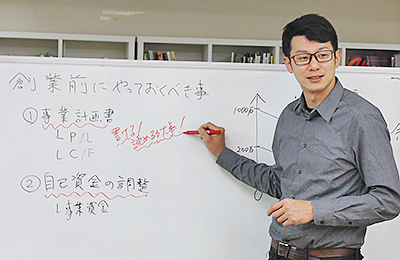 創業前にやっておくべき事
① 事業計画書
└ P/L
└ C/F
書ける!
② 自己資金の調整
└ 事業資金
1000万
200万